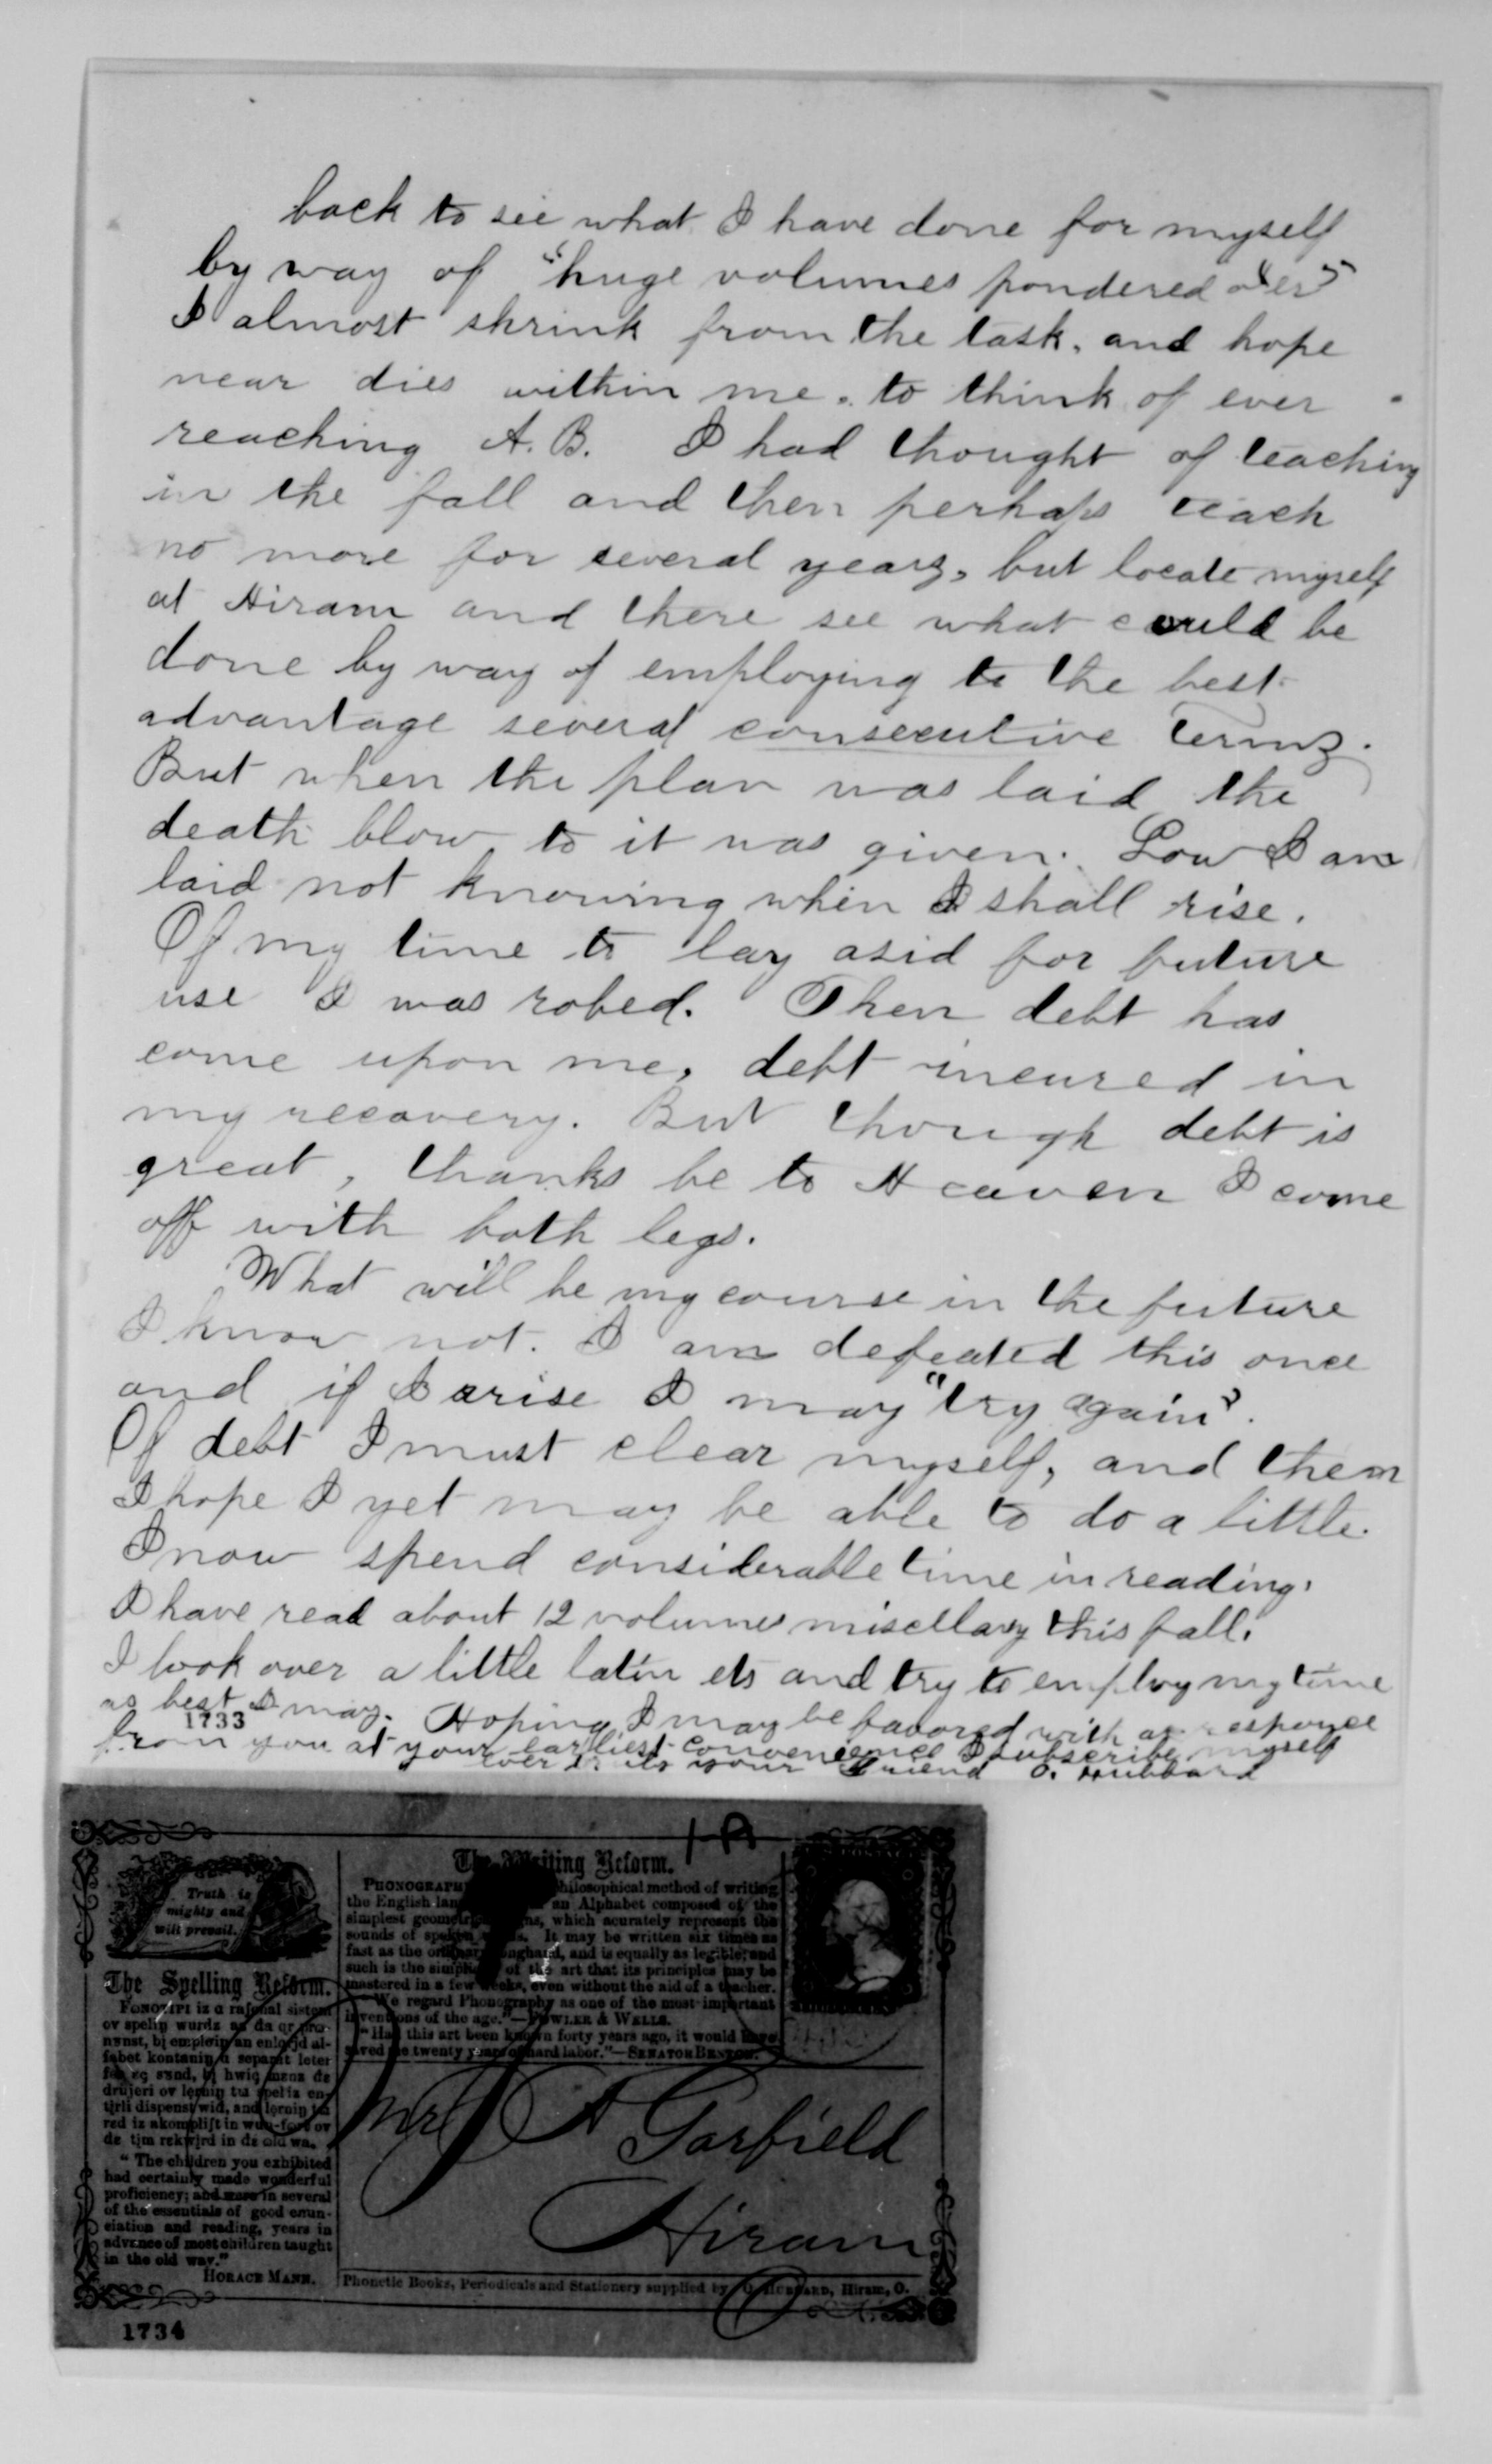 back to see what I have done for myself
by way of "huge volumes pondered o'er"
I almost shrink from the task, and hope
near dies within me. to think of ever
reaching A. B. I had thought of teaching
in the fall and then perhaps teach
no more for several years, but locate myself
at Hiram and there see what could be
done by way of employing to the best
advantage several consecutive terms.
But when the plan was laid the
death blow to it was given. Low I am
laid not knowing when I shall rise.
Of my time to lay asid for future
use I was robed. Then debt has
come upon me, debt incured in
my recovery. But though debt is
great, thanks be to Heaven I come
off with both legs.
What will be my course in the future
I know not. I am defeated this once
and if I arise I may "try again".
Of debt I must clear myself, and then
I hope I yet may be able to do a little.
I now spend considerable time in reading.
I have read about 12 volumes misellany this fall.
I look over a little latin etc and try to employ my time
as best I may. Hoping I may be favored with a responce
1733
from you at your earliest convenience I subscribe myself
ever your Friend O. Hubbard
Truth is
mighty and
will prevail.
The Spelling Reform.
Fonotipi iz a
ov speliŋ wurdz
alfabet
"The children you exhibited
had certainly made wonderful
proficiency; and were in several
of the essentials of good enun-
ciation and reading, years in
advance of most children taught
in the old way."
Horace Mann.
The Writing Reform.
Phonography philosophical method of writing
the English language an Alphabet composed of the
simplest geometrical signs, which acurately represent the
sounds of spoken words. It may be written six times as
fast as the ordinary longhand, and is equally as legible; and
such is the simplicity of the art that its principles may be
mastered in a few weeks, even without the aid of a teacher.
"We regard Phonography as one of the most important
inventions of the age."—Fowler & Wells.
"Had this art been known forty years ago, it would have
saved me twenty years of hard labor."—Senator Benton.
Mr J A Garfield
Hiram
Phonetic Books, Periodicals and Stationery supplied by O. Hubbard, Hiram, O.
1734